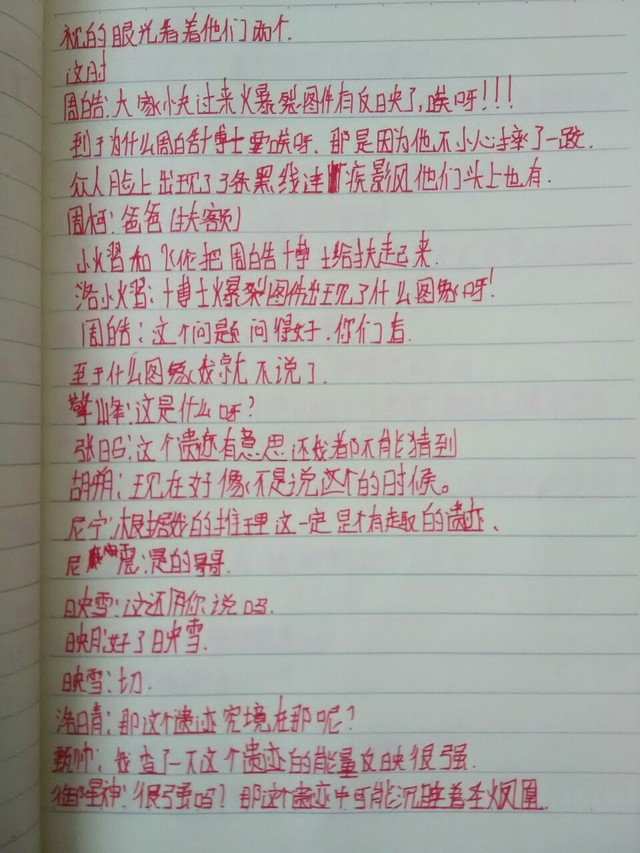 视的眼光看着他们两个.
这时
周皓:大家小夫过来火爆裂图件有反映了,唉呀!!!
到于为什么周皓博士要唉呀.那是因为他不小心摔了一跤.
众人脸上出现了3条黑线连疾影风他们头上也有.
周柯:爸爸(扶额)
小火習和飞依把周皓博士给扶起来.
洛小火習:博士火爆裂图件出现了什么图像呀!
周皓:这个问题问得好.你们看.
至于什么图像我就不说了.
擎峰:这是什么呀?
张吕:这个遗迹有意思还我都不能猜到
胡朔:现在好像不是说这个的时候。
尼宁:根据我的推理这一定是有趣的遗迹、
尼震:是的哥哥.
映雪:这还用你说吗.
映月:好了映雪.
映雪:切.
洛青:那这个遗迹究境在那呢?
甄帅:我查了一下这个遗迹的能量反映很强.
星神:很强吗?那这个遗迹中可能沉睡着圣火凤凰.